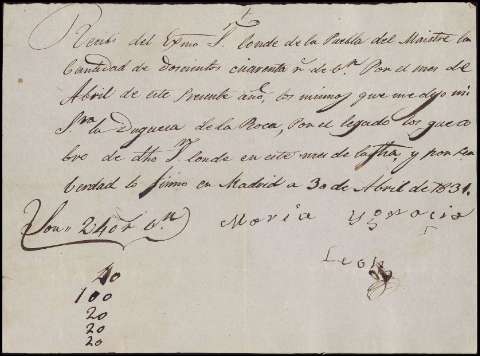 Recibi del Exmo Sr. Conde de la Puebla del Maestre la
Cantidad de doscientos cuarenta rs. de Vn. Por el mes de
Abril de este presente año, los mismos que me dejo mi
Sra. la Duquesa de la Roca, Por el legado los que co
bro de dho Sr. Conde en este mes de la fha, y para
verdad lo firmo en Madrid a 30 de Abril de 1831.
Son.. 240 rs. Vn.
Maria Ygnacia
Leon
40
100
20
20
20